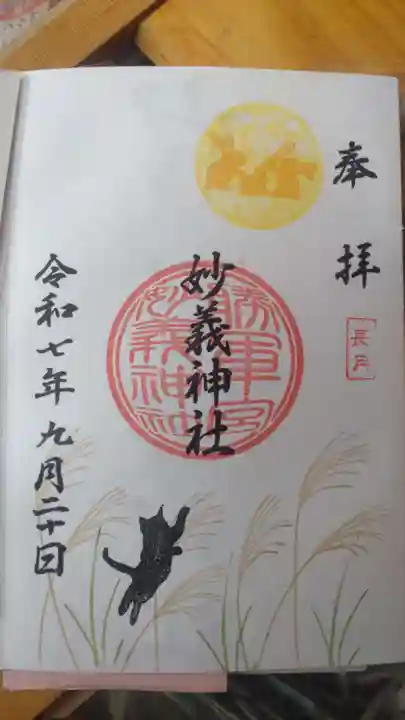 奉拝
長月
妙義神社
令和七年九月二十日